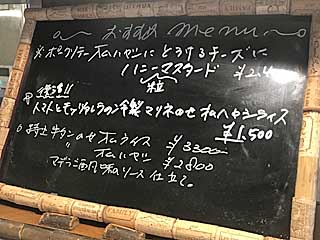 おすすめ menu
※ボロリテー オムハヤシにとろけるチーズに
ハニーマスタード ¥2.4
粒
復活!!
トマトとモッツァレラの冷製マリネのせ オムハヤシライス
¥1,500
○特上牛タンのせ オムライス ¥3300
〃 オムハヤシ ¥2800
マデラ酒風味のソース仕立て。